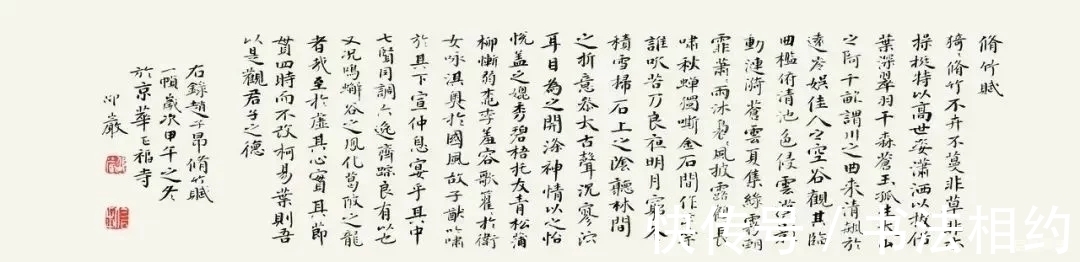 脩竹賦
猗猗脩竹不卉不蔓非草非木
操挺特以高世姿瀟洒以拔俗
葉深翠羽干森蒼玉孤生太山
之阿千畝謂川之曲来清飆於
遠岑娱佳人之空谷觀其臨
曲檻俯清池色侵雲漢影
動漣漪蒼雲夏集綠雾朝
霏蕭〻雨沐裊〻風披露鶴長
嘯秋蟬獨嘶金石間作笙竽
誰吹若乃良夜明月窮冬
積雪掃石上之陰聽林間
之折意參太古聲沉寥泬
耳目為之開滌神情以之怡
悦盖之媲秀碧梧托友青松蒲
柳慚弱桃李羞容歌籊於衛
女咏淇奥於國風故子猷嘯
於其下宣仲息宴乎其中
七賢同調六逸齊踪良有以也
又况鳴嶰谷之鳳化葛陂之龍
者哉至於虚其心實其節
贯四時而不改柯易葉則吾
以是觀君子之德
右錄趙子昂脩竹賦
一幀歲次甲午之冬
於京華七福寺
快传号/书法相约